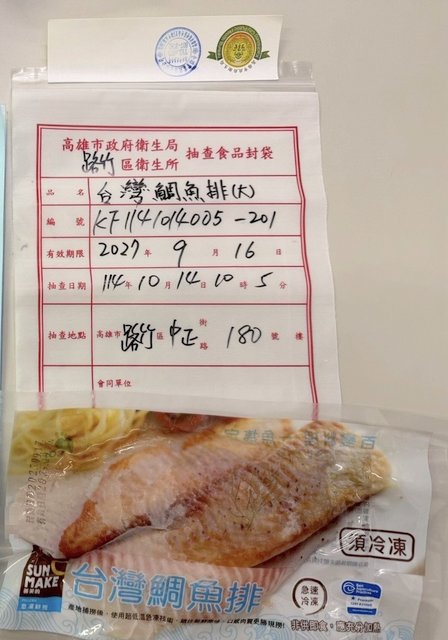 高雄市政府衛生局
路竹 區衛生所 抽查食品封袋
品名 台灣鯛魚排(大)
編號 KF1141014005-201
有效期限 2027年 9月 16日
抽查日期 114年 10月 14日 10時 5分
抽查地點 高雄市 路竹 區 中正 街路 180 號 樓
會同單位
須冷凍
SUN
MAKE
台灣鯛魚排
急速
冷凍
產地捕撈後,使用超低溫急凍技術
非供即食,需充分加熱